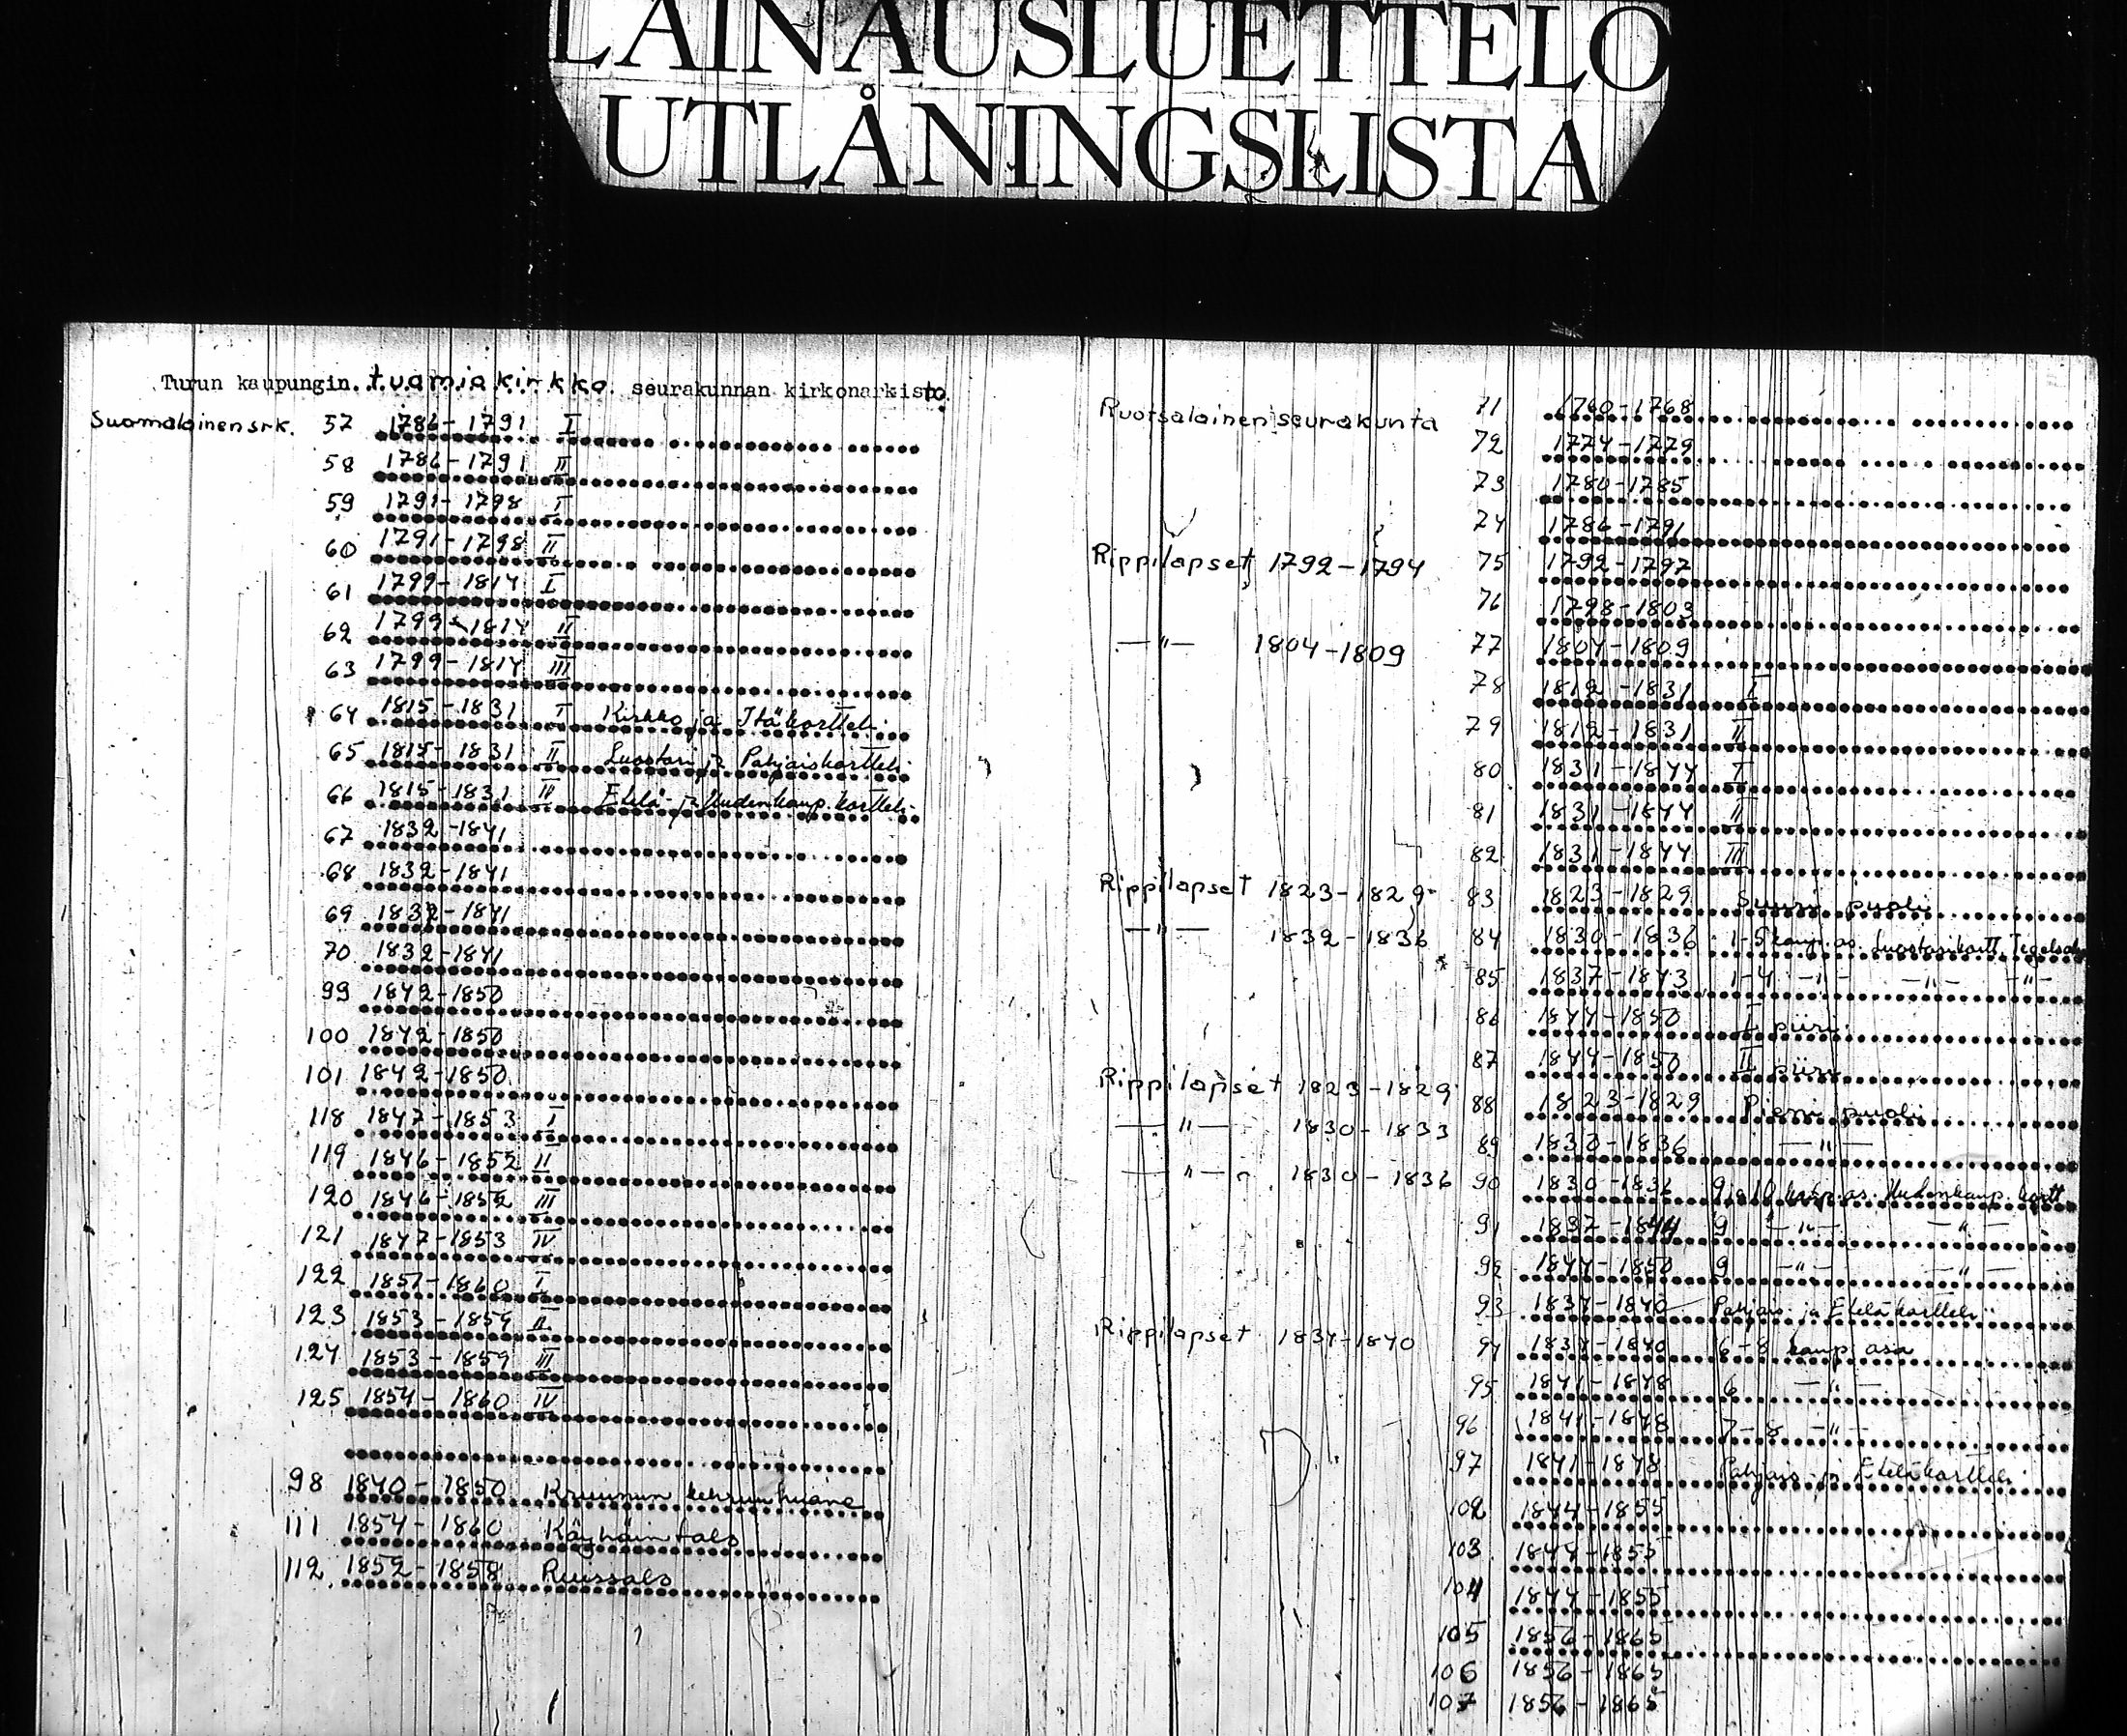 LAINAUSLUETTELO
UTLÅNINGSLISTA
Turun kaupungin tuomiokirkko seurakunnan kirkonarkisto
Suomalainen srk. 57 1786-1791 I
58 1786-1791 II
59 1791-1798 I
60 1791-1798 II
61 1799-1814 I
62 1799-1814 II
63 1799-1814 III
64 1815-1831 I Kirkko ja Itäkortteli
65 1815-1831 II Luostari ja Pohjaiskortteli
66 1815-1831 IV Etelä- ja Uudenkaup. kortteli
67 1832-1841
68 1832-1841
69 1832-1841
70 1832-1841
99 1842-1850
100 1842-1850
101 1842-1850
118 1847-1853 I
119 1846-1852 II
120 1846-1852 III
121 1847-1853 IV
122 1851-1860 I
123 1853-1859 II
124 1853-1859 III
125 1854-1860 IV
98 1840-1850 Kruunun kehruuhuone
111 1854-1860
112 1852-1858 Ruissalo
Ruotsalainen seurakunta 71 1760-1768
72 1774-1779
73 1780-1785
74 1786-1791
Rippilapset 1792-1794 75 1792-1797
76 1798-1803
—"— 1804-1809 77 1804-1809
78 1812-1831 I
79 1812-1831 II
80 1831-1844 I
81 1831-1844 II
82 1831-1844 III
Rippilapset 1823-1829 83 1823-1829 Suuri puoli
—"— 1832-1836 84 1830-1836 1-5 kaup. os. Luostarikortt.
85 1837-1843 1-4 —"— —"— —"—
86 1844-1850 I piiri
87 1844-1850 II piiri
Rippilapset 1823-1829 88 1823-1829 Pieni puoli
—"— 1830-1833 89 1830-1836 —"—
—"— 1830-1836 90 1830-1836 9 a 10 kaup. os. Uudenkaup. kortt
91 1837-1844 9 —"— —"—
92 1844-1850 9 —"— —"—
93 1834-1840 Pohjais ja Eteläkortteli
Rippilapset 1834-1840 94 1834-1840 6-8 kaup. osa
95 1841-1848 6 —"—
96 1841-1848 7-8 —"—
97 1841-1848 Pohjais ja Eteläkortteli
102 1844-1855
103 1844-1855
104 1844-1855
105 1856-1865
106 1856-1865
107 1856-1865